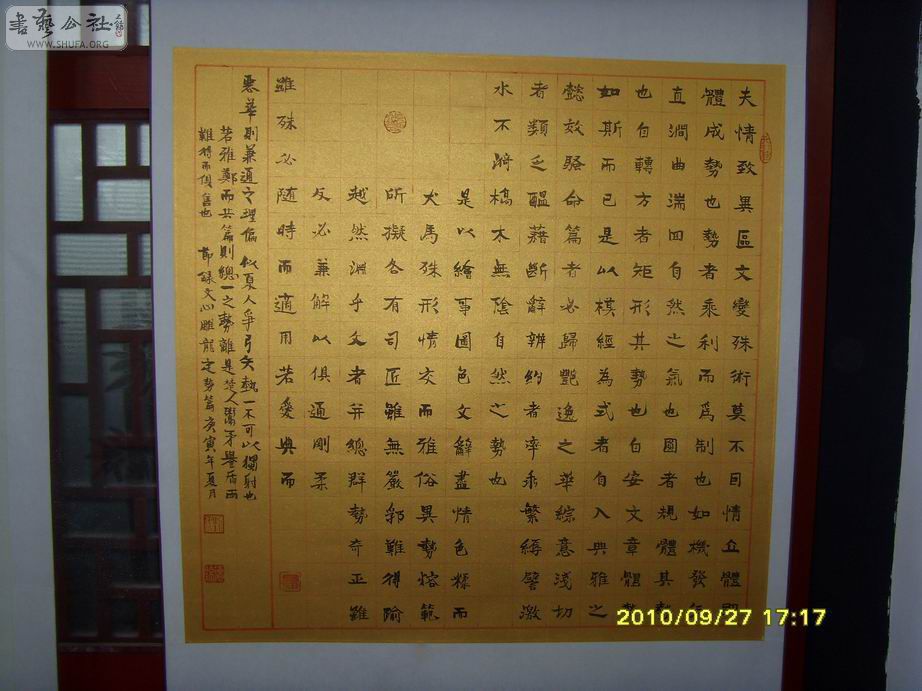 書藝公社
WWW.SHUFA.ORG
夫情致異區文變殊術莫不因情立體即
體成勢也勢者乘利而為制也如機發矢
直澗曲湍回自然之氣也圓者規體其勢
也自轉方者矩形其勢也自安文章體勢
如斯而已是以模經為式者自入典雅之
懿效騷命篇者必歸艷逸之華綜意淺切
者類乏醞藉斷辭辨約者率乖繁縟譬激
水不漪槁木無陰自然之勢也
是以繪事圖色文辭盡情色糅而
犬馬殊形情交而雅俗異勢熔範
所擬各有司匠雖無嚴郛難得踰
越然淵乎文者并總群勢奇正雖
反必兼解以俱通剛柔
雖殊必隨時而適用若愛典而
惡華則兼通之理偏似夏人爭弓矢執一不可以獨射也
若雅鄭而共篇則總一之勢離是楚人鬻矛譽盾兩
難得而俱售也 節錄文心雕龍定勢篇庚寅年夏月
2010/09/27 17:17